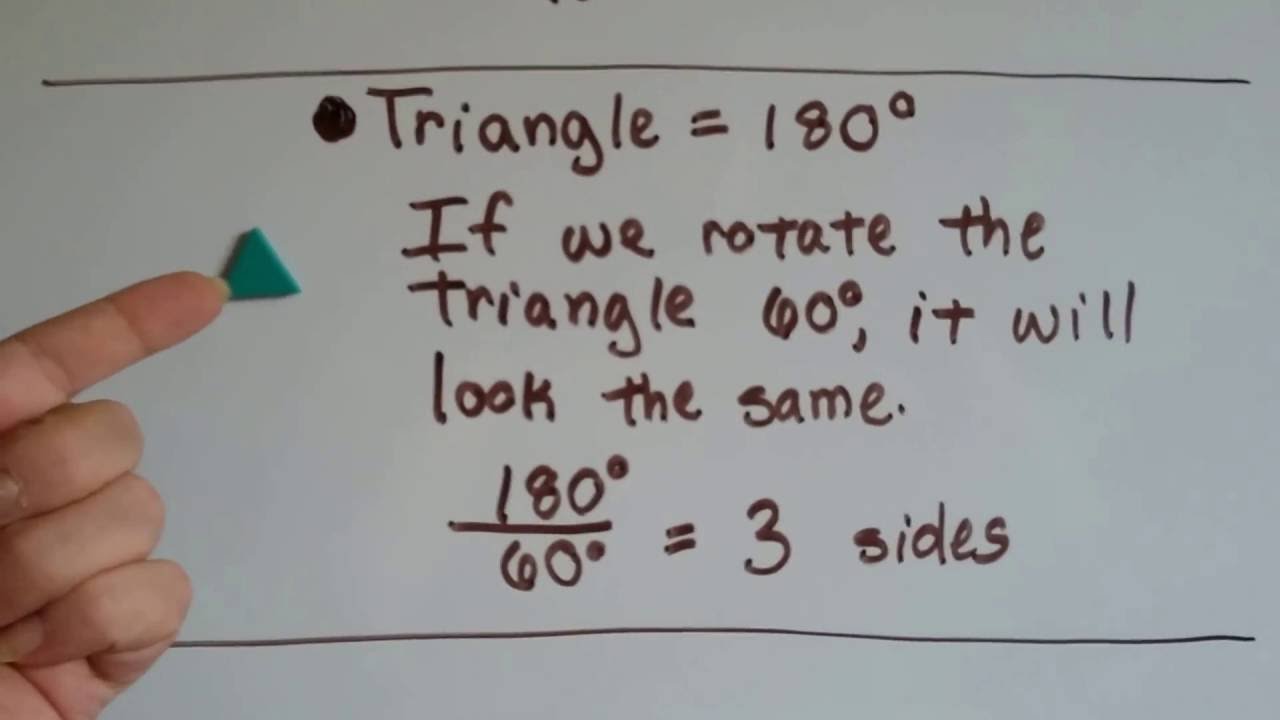 • Triangle = 180°
If we rotate the
triangle 60°, it will
look the same.
180°
60° = 3 sides